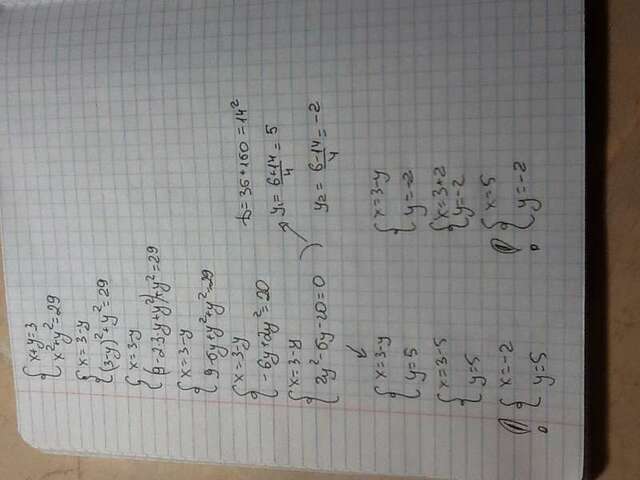 {x+y=3
x²+y²=29
{x=3-y
(3-y)²+y²=29
{x=3-y
(9-2·3y+y²)+y²=29
{x=3-y
9-6y+y²+y²=29
{x=3-y
-6y+2y²=20
{x=3-y
2y²-6y-20=0
D=36+160=14²
y₁=6+14/4=5
y₂=6-14/4=-2
{x=3-y
y=5
{x=3-5
y=5
{x=-2
y=5
{x=3-y
y=-2
{x=3+2
y=-2
{x=5
y=-2